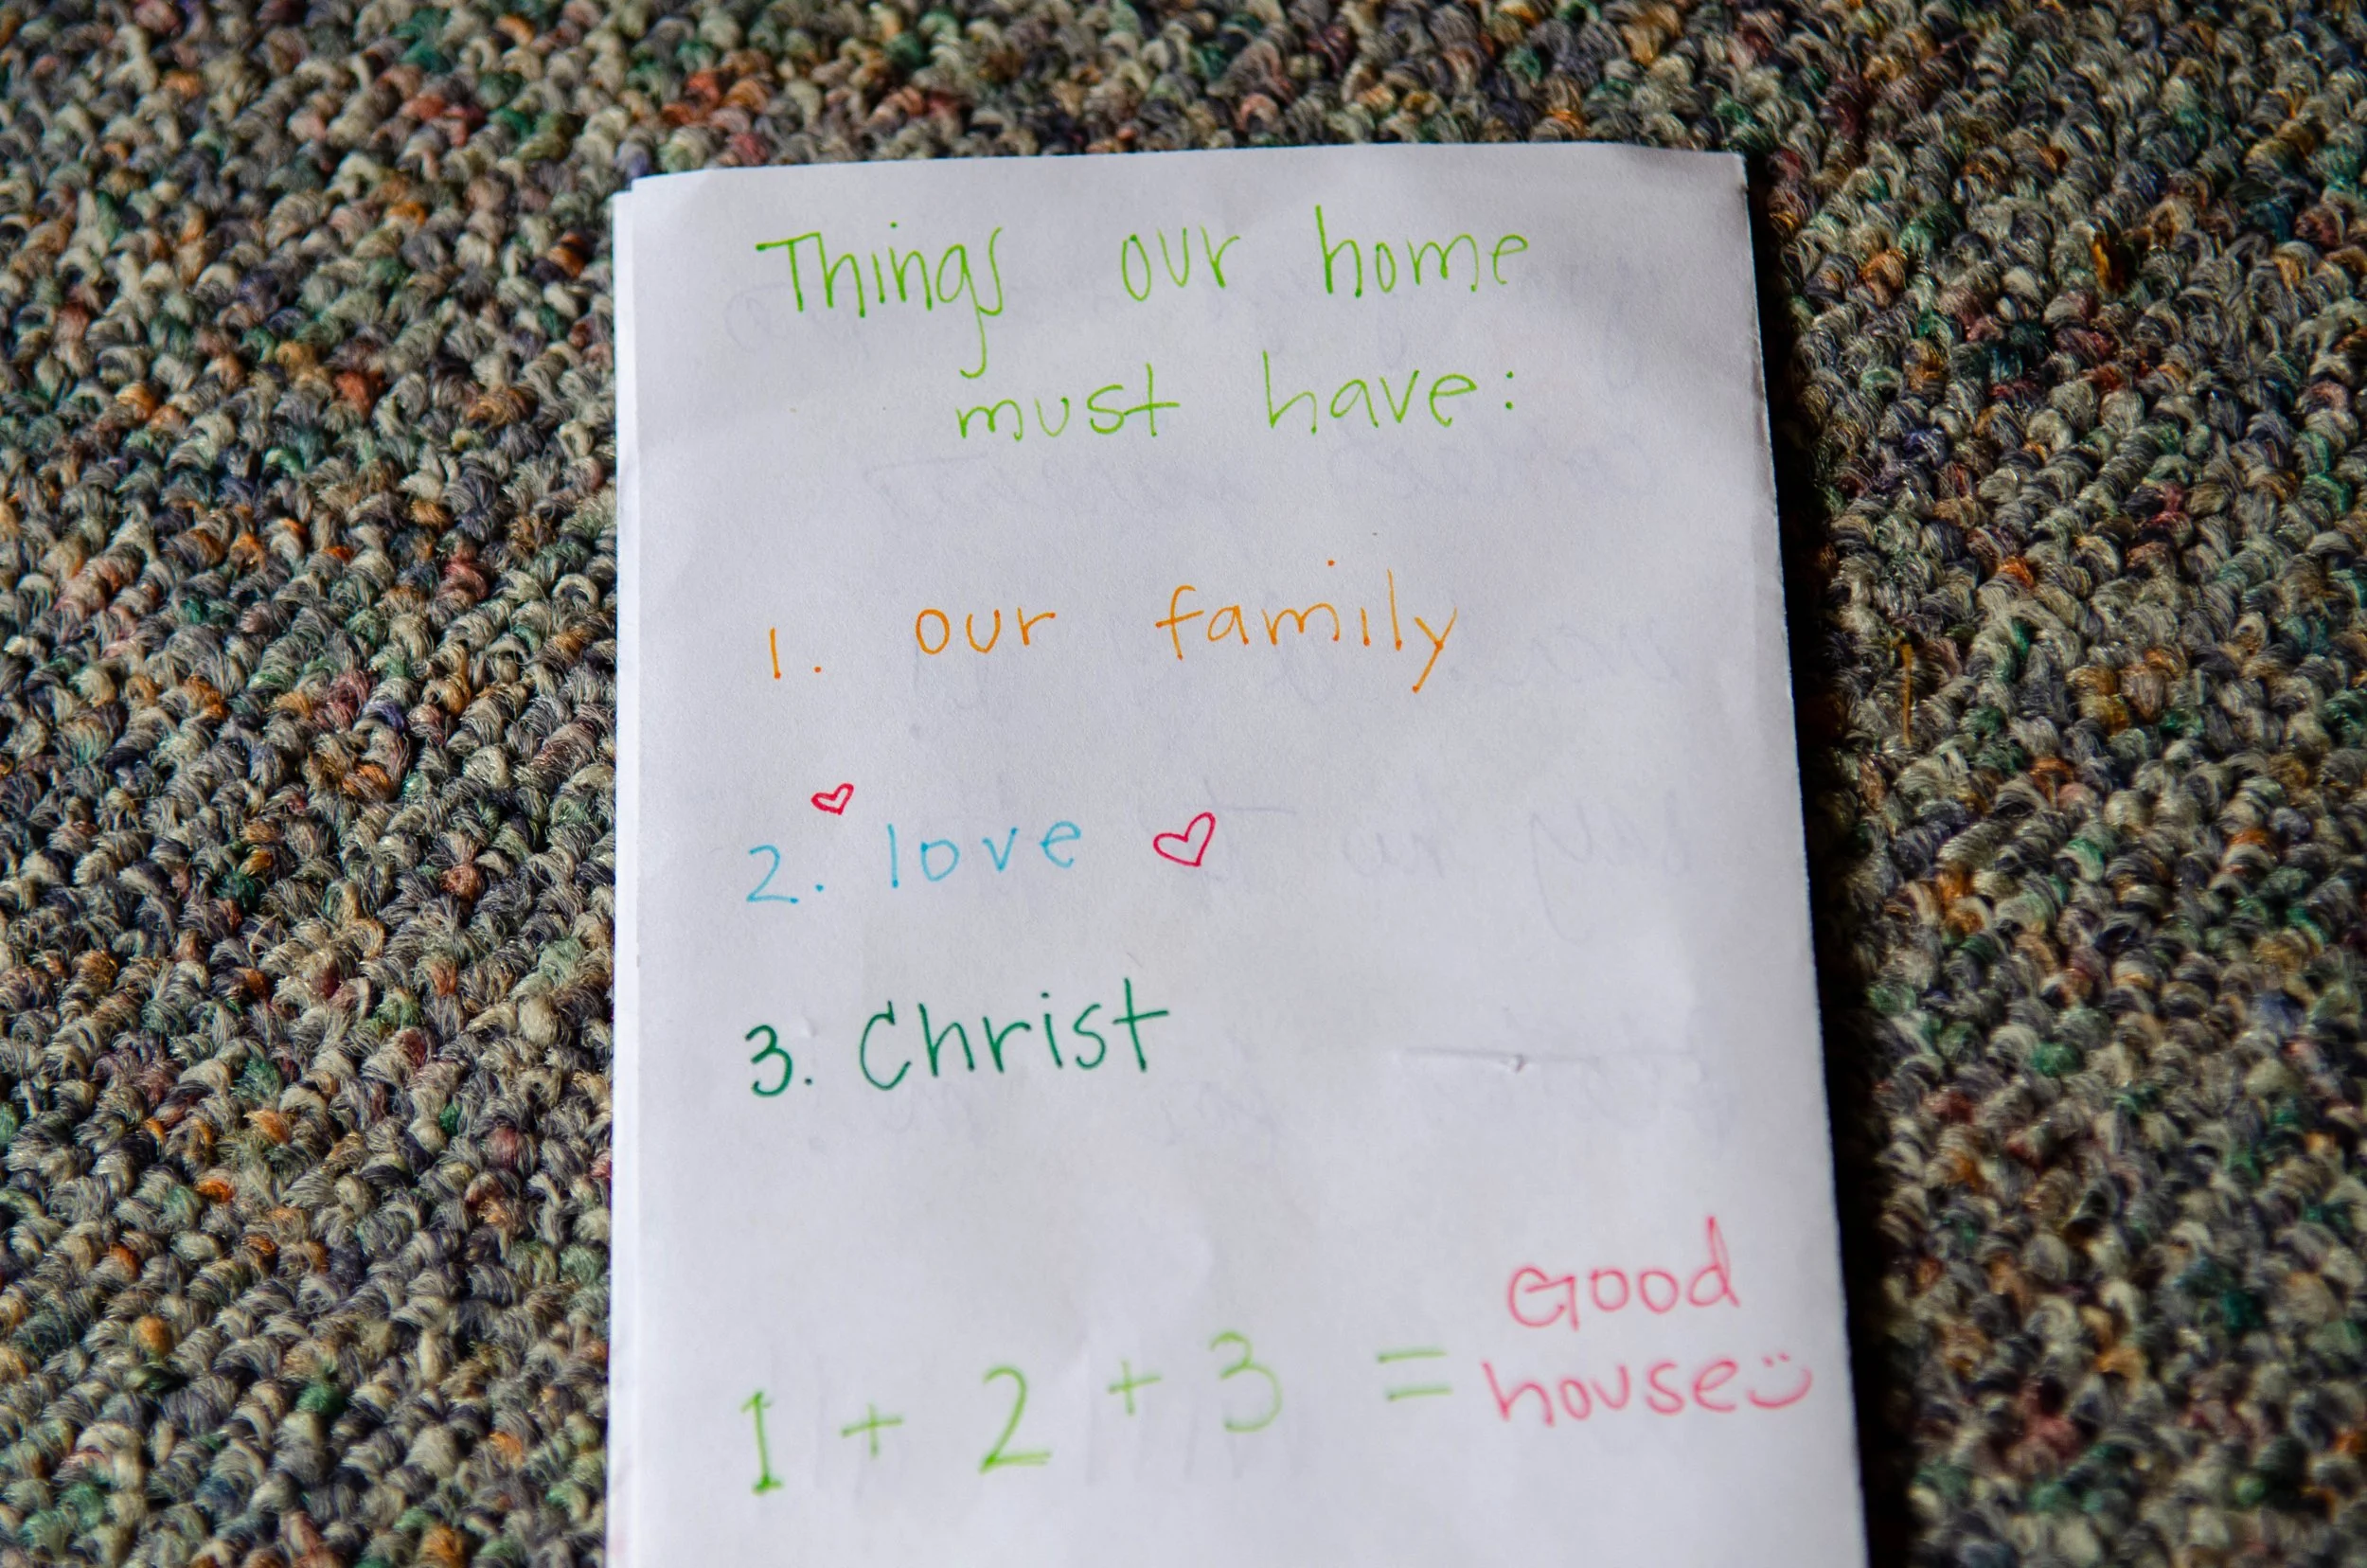 Things our home
must have:
1. our family
2. love
3. Christ
1 + 2 + 3 = Good
house